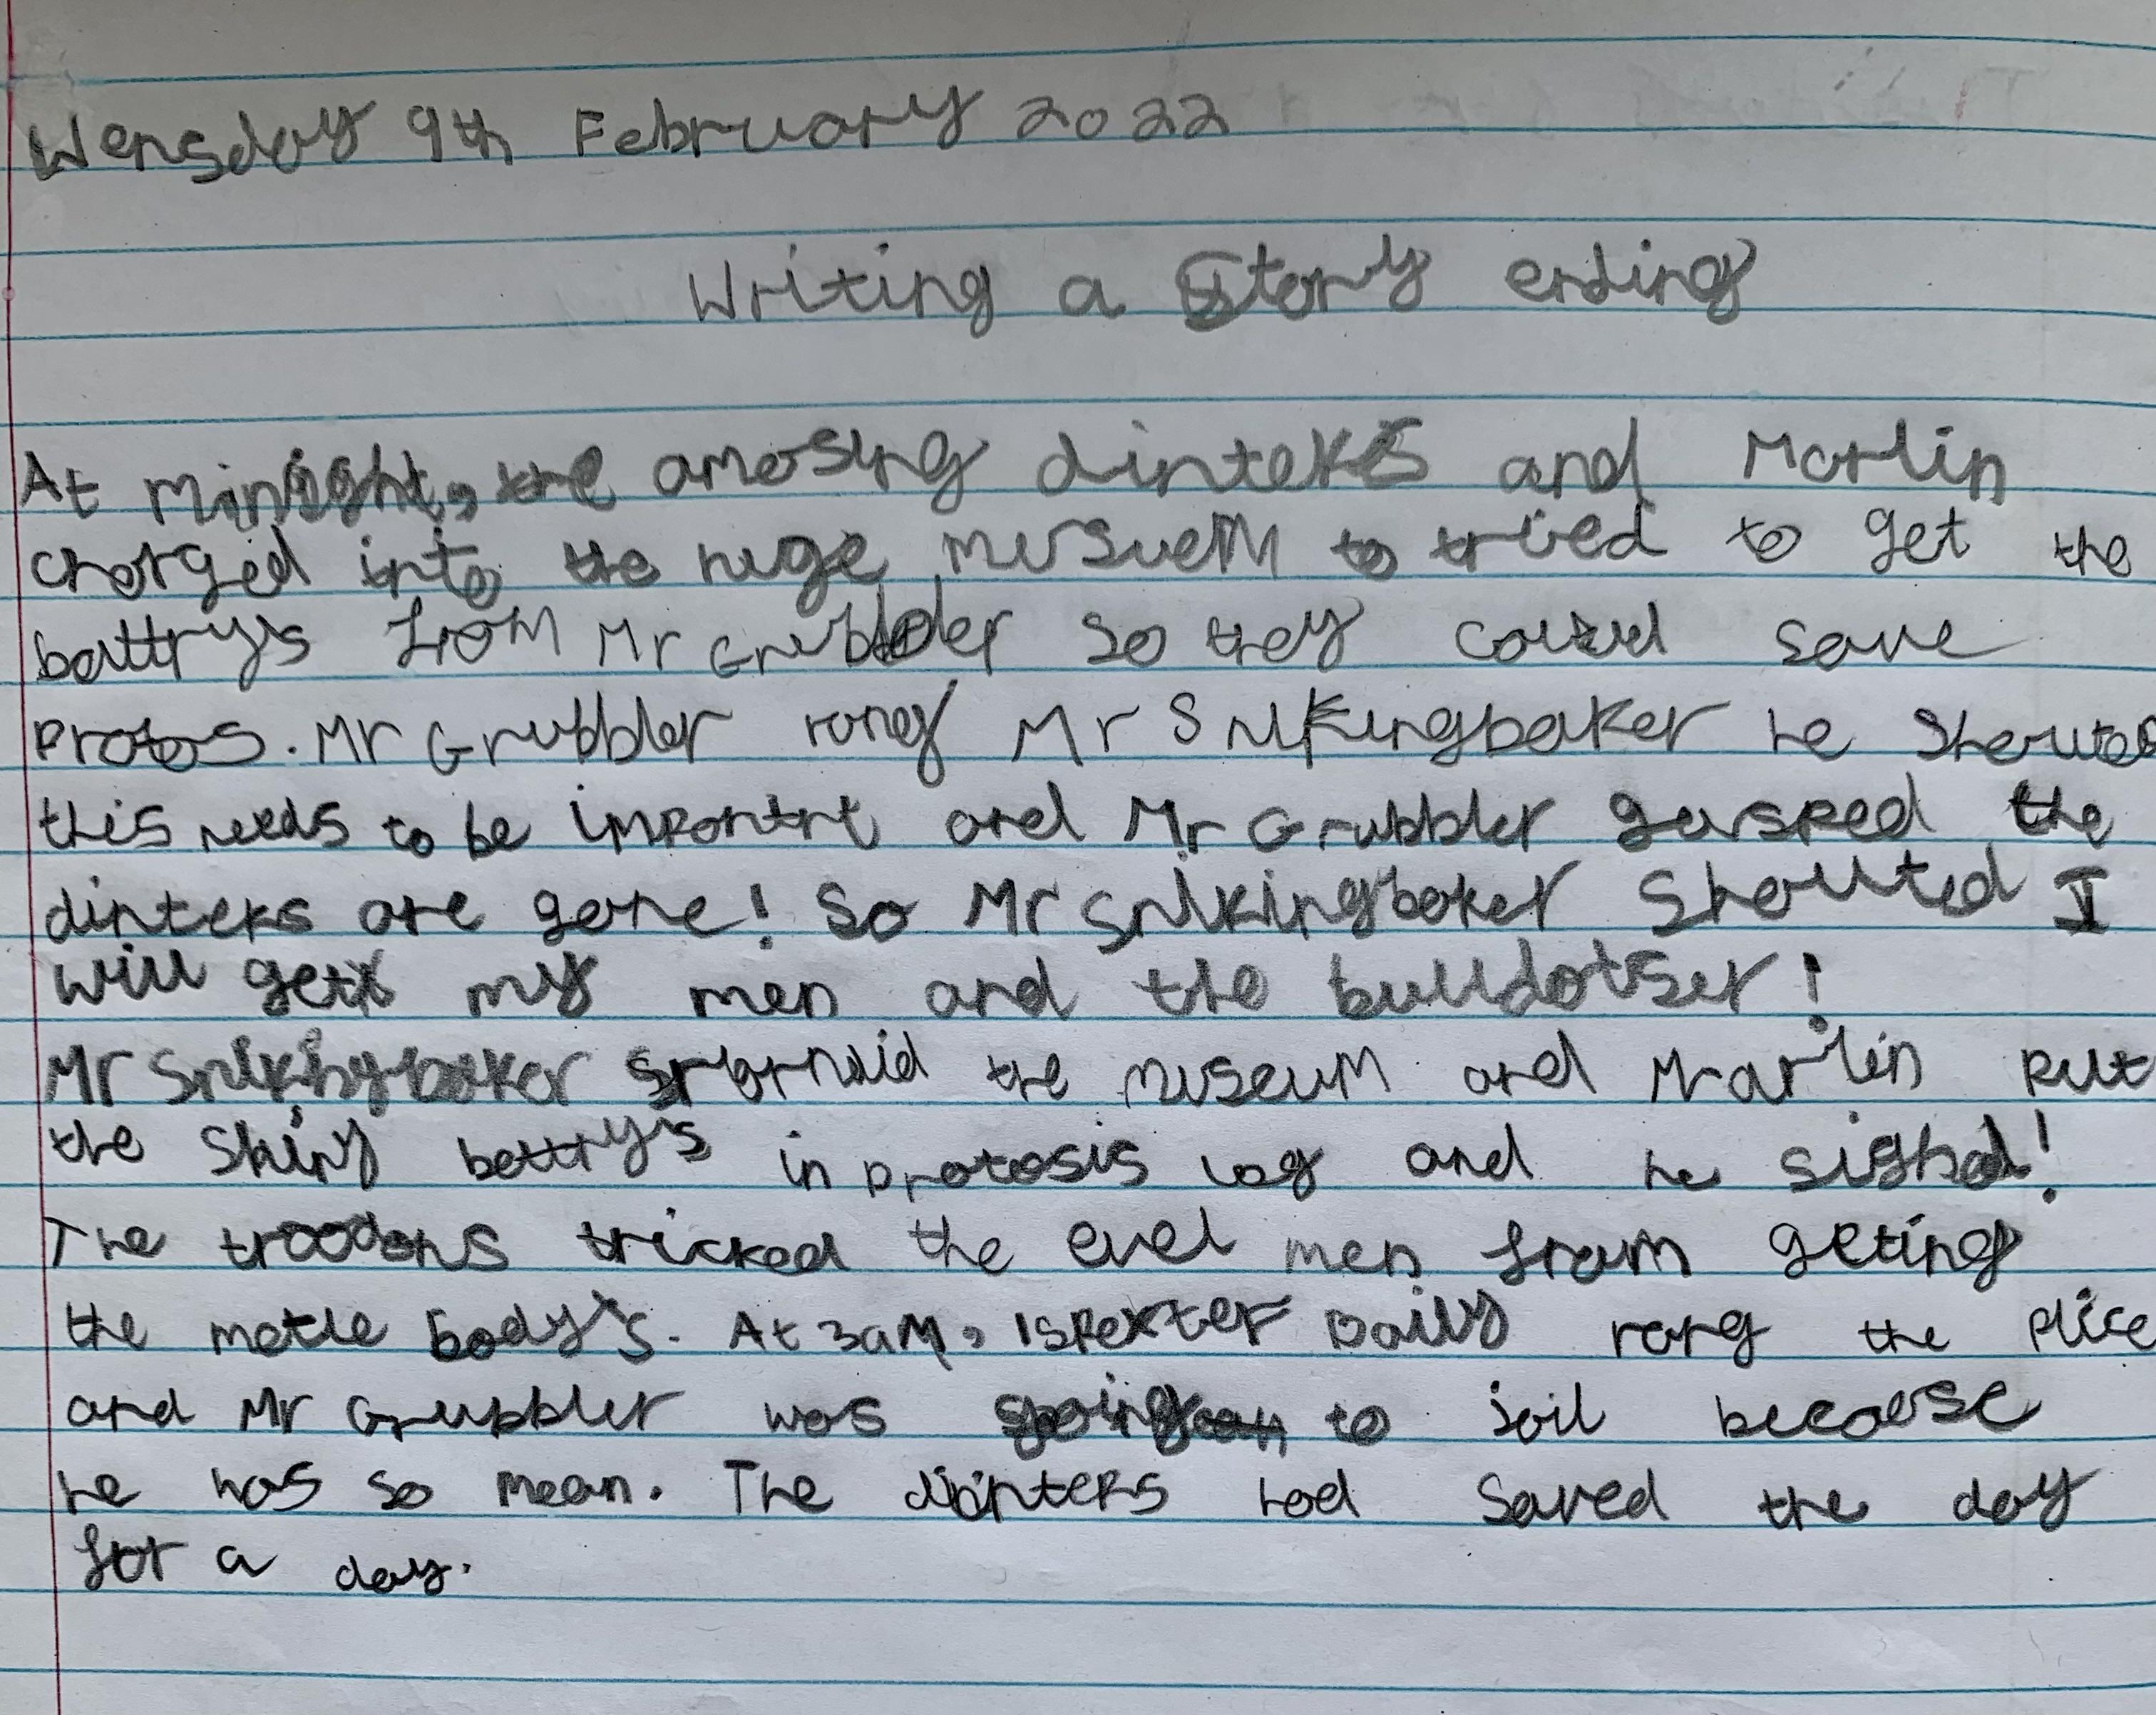 Wensday 9th February 2022
Writing a Story ending
At minight, the amosing dinteks and Marlin
charged into the huge musuem to tried to get the
battry's from Mr Grubbler so they could save
Protos. Mr Grubbler rong Mr Snikingbaker he shouted
this needs to be importnt and Mr Grubbler gasped the
dinteks are gone! So Mr Snikingbaker Shouted I
will get my men and the bulldotser!
Mr Snikingbaker the museum and Marlin put
the shiny battry's in protosis leg and he sighed!
The troodons tricked the evel men from geting
the metle body's. At 3am, ispexter Daily rong the plice
and Mr Grubbler was going to jail because
he was so mean. The dinteks had saved the day
for a day.